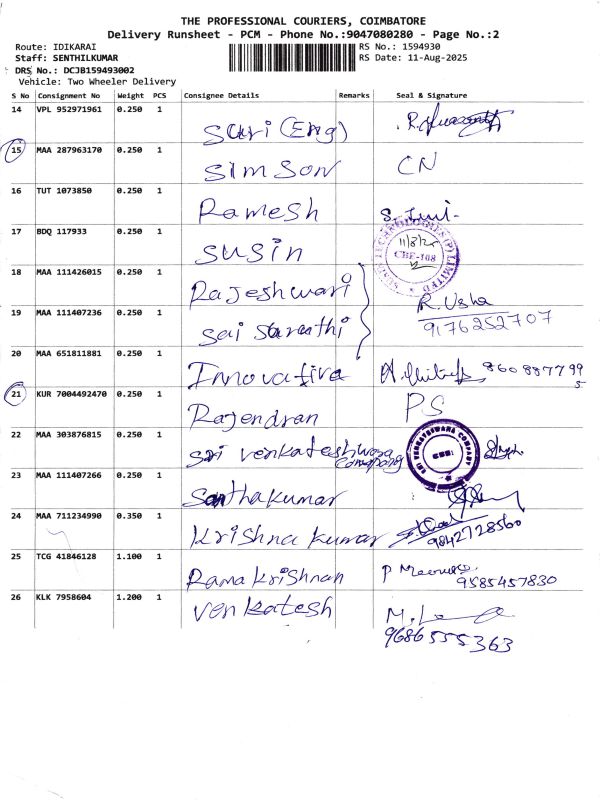 THE PROFESSIONAL COURIERS, COIMBATORE
Delivery Runsheet - PCM - Phone No.:9047080280 - Page No.:2
Route: IDIKARAI RS No.: 1594930
Staff: SENTHILKUMAR RS Date: 11-Aug-2025
DRS No.: DCJB159493002
Vehicle: Two Wheeler Delivery
S No Consignment No Weight PCS Consignee Details Remarks Seal & Signature
14 VPL 952971961 0.250 1 (Eng)
15 MAA 287963170 0.250 1 Simson CN
16 TUT 1073850 0.250 1 Ramesh
17 BDQ 117933 0.250 1 Susin
11/8/25
CBE-108
18 MAA 111426015 0.250 1 Rajeshwari R. Usha
9176252707
19 MAA 111407236 0.250 1 Sai Sarathi
20 MAA 651811881 0.250 1 Innovative
21 KUR 7004492470 0.250 1 Rajendran PS
22 MAA 303876815 0.250 1 Sri Venkateshwara
Company
SRI VENKATESHWARA COMPANY
23 MAA 111407266 0.250 1 Santhakumar
24 MAA 711234990 0.350 1 Krishna kumar
9842728560
25 TCG 41846128 1.100 1 Rama Krishnan P
9585457830
26 KLK 7958604 1.200 1 Venkatesh M.
9686555363